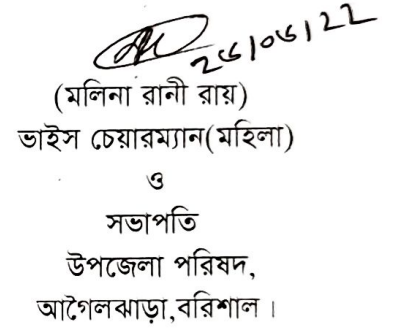 ২৫/০৫/২২
(মলিনা রানী রায়)
ভাইস চেয়ারম্যান(মহিলা)
ও
সভাপতি
উপজেলা পরিষদ,
আগৈলঝাড়া,বরিশাল।